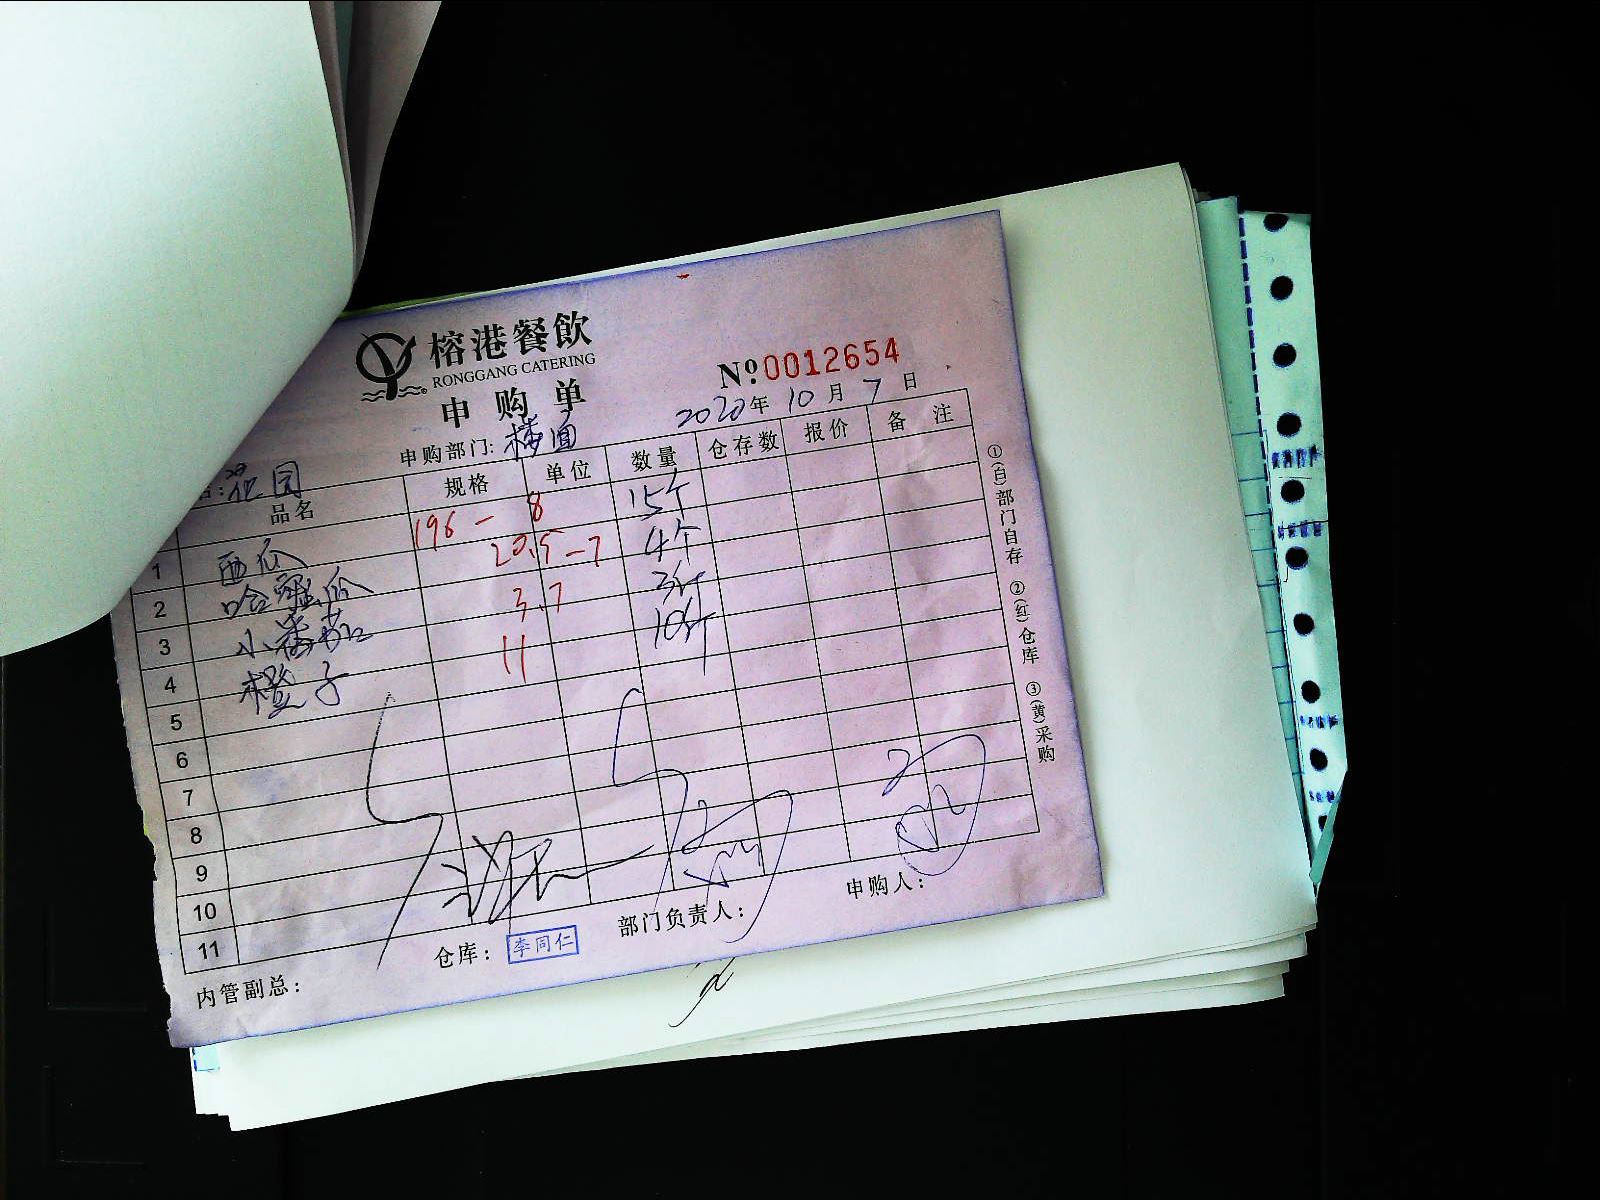 榕港餐飲
RONGGANG CATERING
申购单
№0012654
申购部门: 楼面 2020年 10月 7日
花园
品名 规格 单位 数量 仓存数 报价 备注
1 西瓜 196-8 15个
2 哈蜜瓜 20.5-7 4个
3 小番茄 3.7 3斤
4 橙子 11 10斤
5
6
7
8
9
10
11
①(白)部门自存 ②(红)仓库 ③(黄)采购
内管副总: 仓库: 李同仁 部门负责人: 申购人: